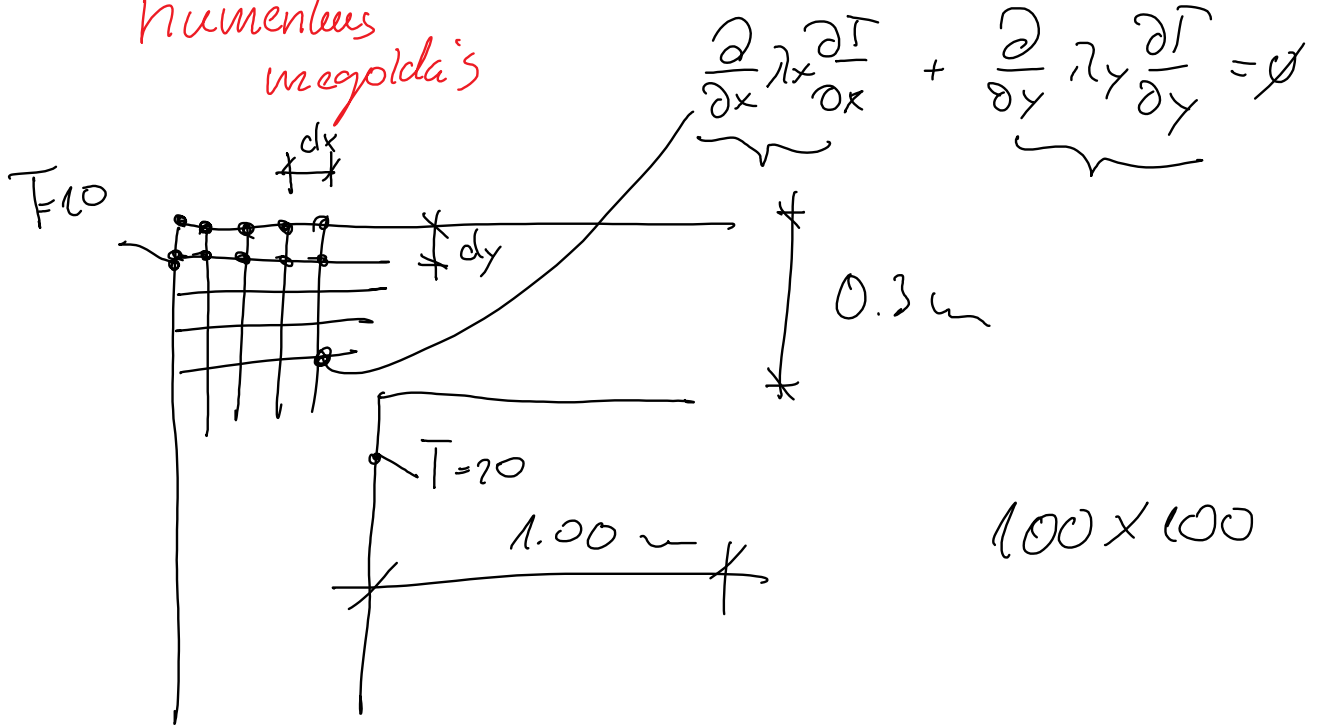 numerikus
megoldás
∂/∂x λx ∂T/∂x + ∂/∂y λy ∂T/∂y = ∅
dx
T=10
dy
0.3 m
T=20
1.00 m
100×100